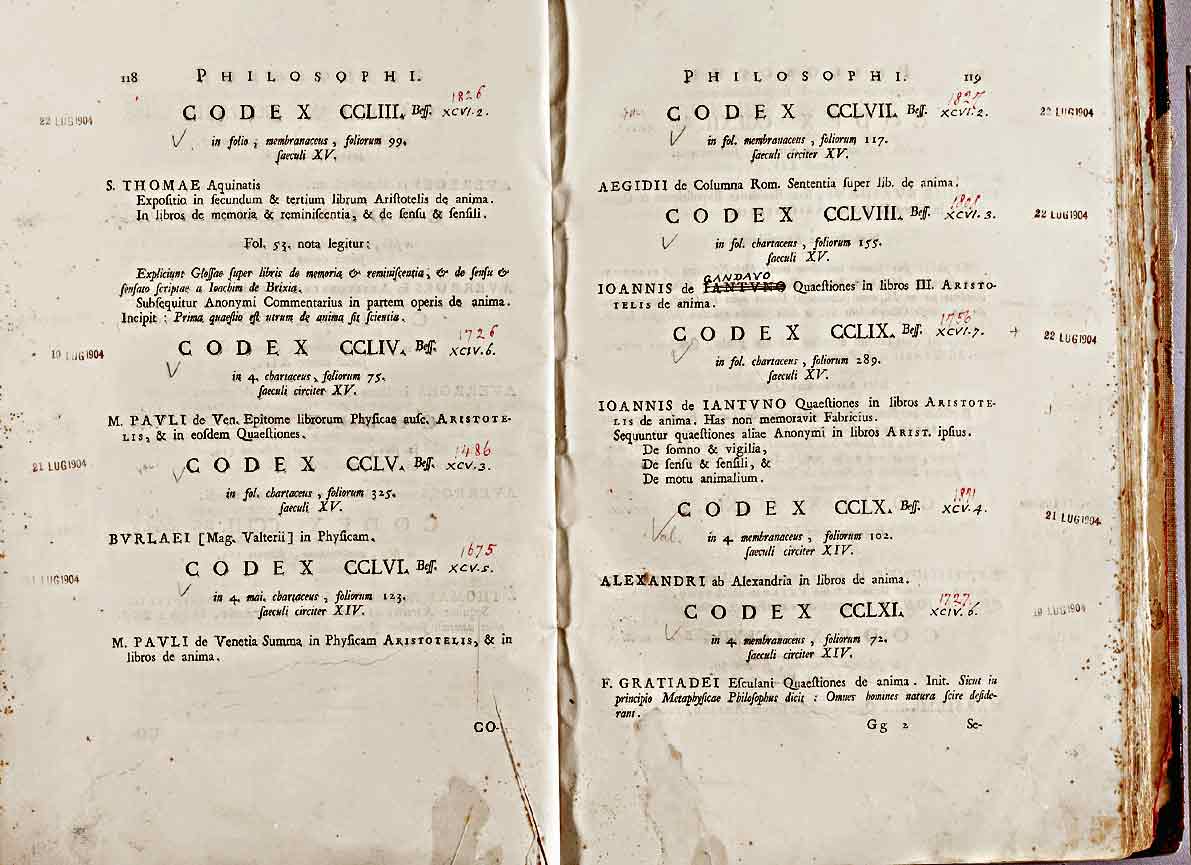 118 PHILOSOPHI.
1826
22 LUG 1904 CODEX CCLIII. Beſſ. XCVI.2.
in folio, membranaceus, foliorum 99.
ſaeculi XV.
S. THOMAE Aquinatis
Expoſitio in ſecundum & tertium librum Ariſtotelis de anima.
In libros de memoria & reminiſcentia, & de ſenſu & ſenſili.
Fol. 53. nota legitur:
Expliciunt Gloſſae ſuper libris de memoria & reminiſcentia, & de ſenſu &
ſenſato ſcriptae a Ioachim de Brixia.
Subſequitur Anonymi Commentarius in partem operis de anima.
Incipit: Prima quaeſtio eſt utrum de anima ſit ſcientia.
1726
19 LUG 1904 CODEX CCLIV. Beſſ. XCIV.6.
in 4. chartaceus, foliorum 75.
ſaeculi circiter XV.
M. PAVLI de Ven. Epitome librorum Phyſicae auſc. ARISTOTE-
LIS, & in eoſdem Quaeſtiones.
1486
21 LUG 1904 CODEX CCLV. Beſſ. XCV.3.
in fol. chartaceus, foliorum 325.
ſaeculi XV.
BVRLAEI [Mag. Valterii] in Phyſicam.
1675
LUG 1904 CODEX CCLVI. Beſſ. XCV.5.
in 4. mai. chartaceus, foliorum 123.
ſaeculi circiter XIV.
M. PAVLI de Venetia Summa in Phyſicam ARISTOTELIS, & in
libros de anima.
CO-
PHILOSOPHI. 119
1827
CODEX CCLVII. Beſſ. XCVI.2. 22 LUG 1904
in fol. membranaceus, foliorum 117.
ſaeculi circiter XV.
AEGIDII de Columna Rom. Sententia ſuper lib. de anima.
CODEX CCLVIII. Beſſ. XCVI.3. 22 LUG 1904
in fol. chartaceus, foliorum 155.
ſaeculi XV.
GANDAVO
IOANNIS de IANTVNO Quaeſtiones in libros III. ARISTO-
TELIS de anima.
1756
CODEX CCLIX. Beſſ. XCVI.7. + 22 LUG 1904
in fol. chartaceus, foliorum 289.
ſaeculi XV.
IOANNIS de IANTVNO Quaeſtiones in libros ARISTOTE-
LIS de anima. Has non memoravit Fabricius.
Sequuntur quaeſtiones aliae Anonymi in libros ARIST. ipſius.
De ſomno & vigilia,
De ſenſu & ſenſili, &
De motu animalium.
CODEX CCLX. Beſſ. XCV.4. 21 LUG 1904
Val. in 4. membranaceus, foliorum 102.
ſaeculi circiter XIV.
ALEXANDRI ab Alexandria in libros de anima.
1727
CODEX CCLXI. Beſſ. XCIV.6. 19 LUG 1904
in 4. membranaceus, foliorum 72.
ſaeculi circiter XIV.
F. GRATIADEI Eſculani Quaeſtiones de anima. Init. Sicut in
principio Metaphyſicae Philoſophus dicit: Omnes homines natura ſcire deſide-
rant.
Gg 2 Se-